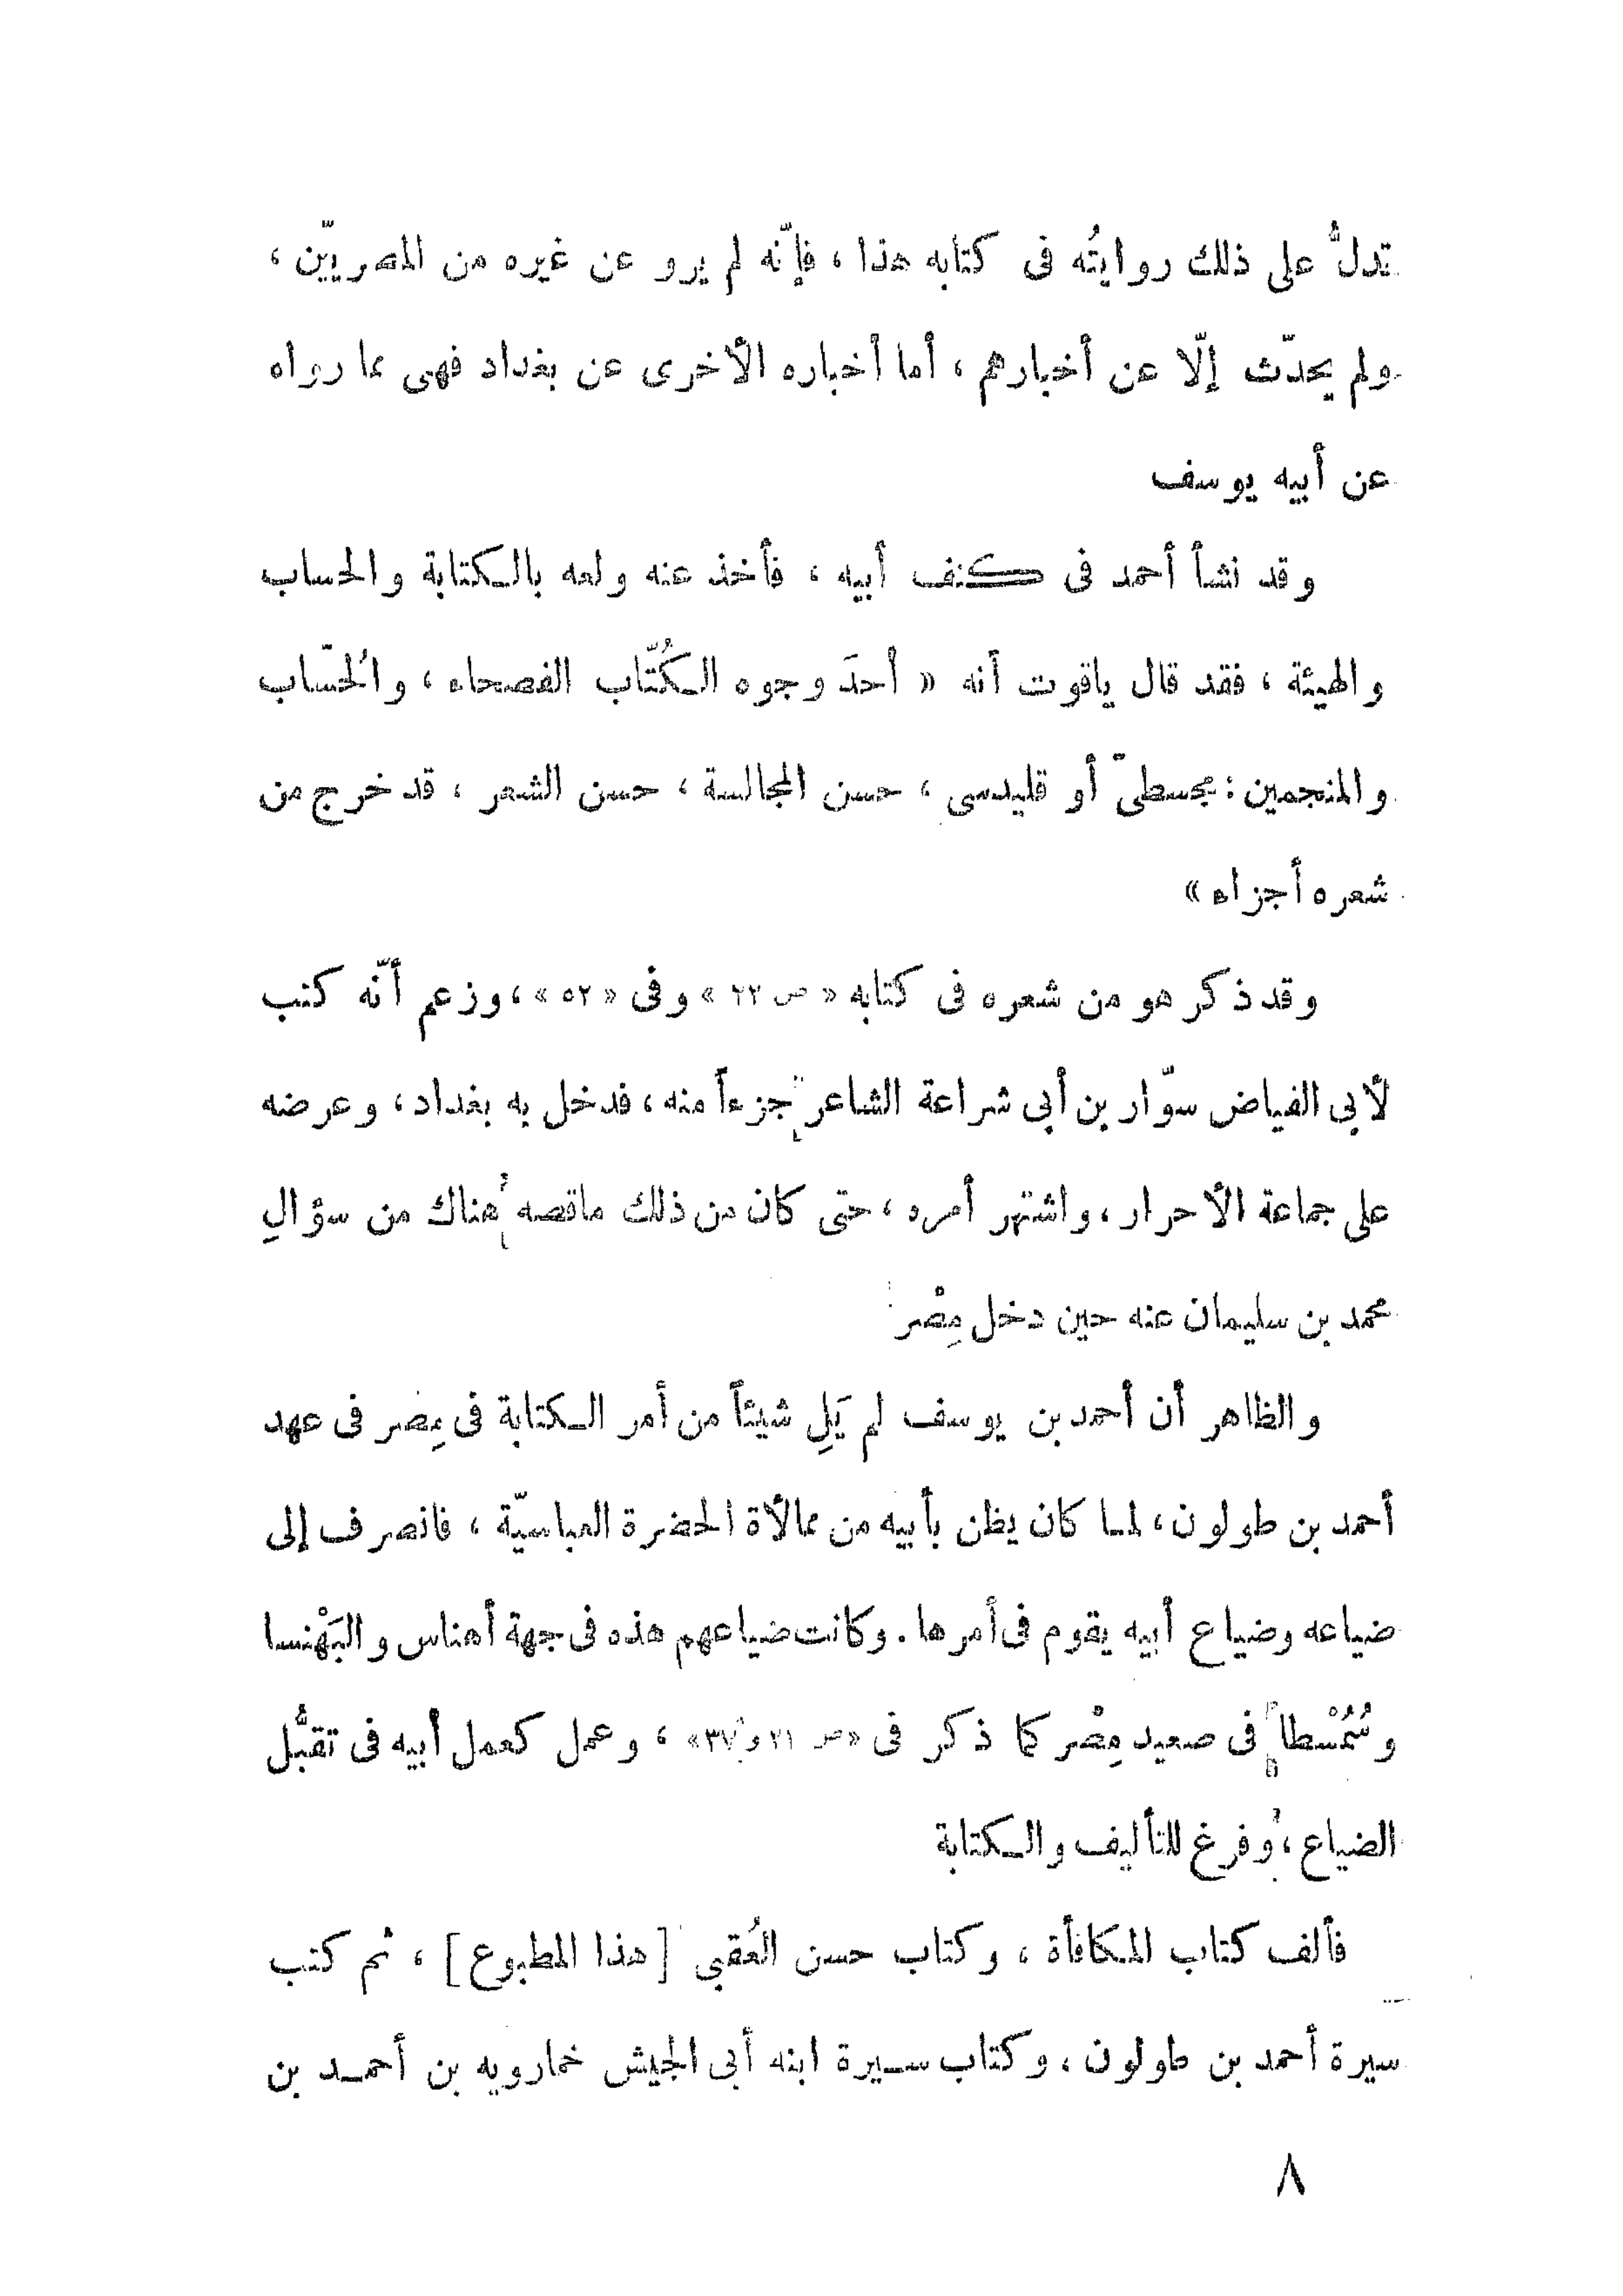 تدلُّ على ذلك روايتُه فى كتابه هذا ، فإنّه لم يرو عن غيره من المصريّين ،
ولم يحدّث إلّا عن أخبارهم ، أما أخباره الأخرى عن بغداد فهى مما رواه
عن أبيه يوسف
وقد نشأ أحمد فى كنف أبيه ، فأخذ عنه ولعه بالكتابة والحساب
والهيئة ، فقد قال ياقوت أنه « أحدَ وجوه الكُتّاب الفصحاء ، والحُسّاب
والمنجمين : مجسطىّ أو قليدسى ، حسن المجالسة ، حسن الشعر ، قد خرج من
شعره أجزاء »
وقد ذكر هو من شعره فى كتابه « ص ٢٢ » وفى « ٥٢ » ، وزعم أنّه كتب
لأبى الفياض سوّار بن أبى شراعة الشاعر جزءاً منه ، فدخل به بغداد ، وعرضه
على جماعة الأحرار ، واشتهر أمره ، حتى كان من ذلك ماقصه هناك من سؤالِ
محمد بن سليمان عنه حين دخل مِصْر
والظاهر أن أحمد بن يوسف لم يَلِ شيئاً من أمر الكتابة فى مِصر فى عهد
أحمد بن طولون ، لما كان يظن بأبيه من ممالأة الحضرة العباسيّة ، فانصرف إلى
ضياعه وضياع أبيه يقوم فى أمرها . وكانت ضياعهم هذه فى جهة أهناس والبَهْنسا
وسُمُسْطا فى صعيد مِصْر كما ذكر فى « ص ٢١ و ٣٧ » ، وعمل كعمل أبيه فى تقبُّل
الضياع ، وفرغ للتأليف والكتابة
فألف كتاب المكافأة ، وكتاب حسن العُقبى [ هذا المطبوع ] ، ثم كتب
سيرة أحمد بن طولون ، وكتاب سيرة ابنه أبى الجيش خمارويه بن أحمد بن
٨